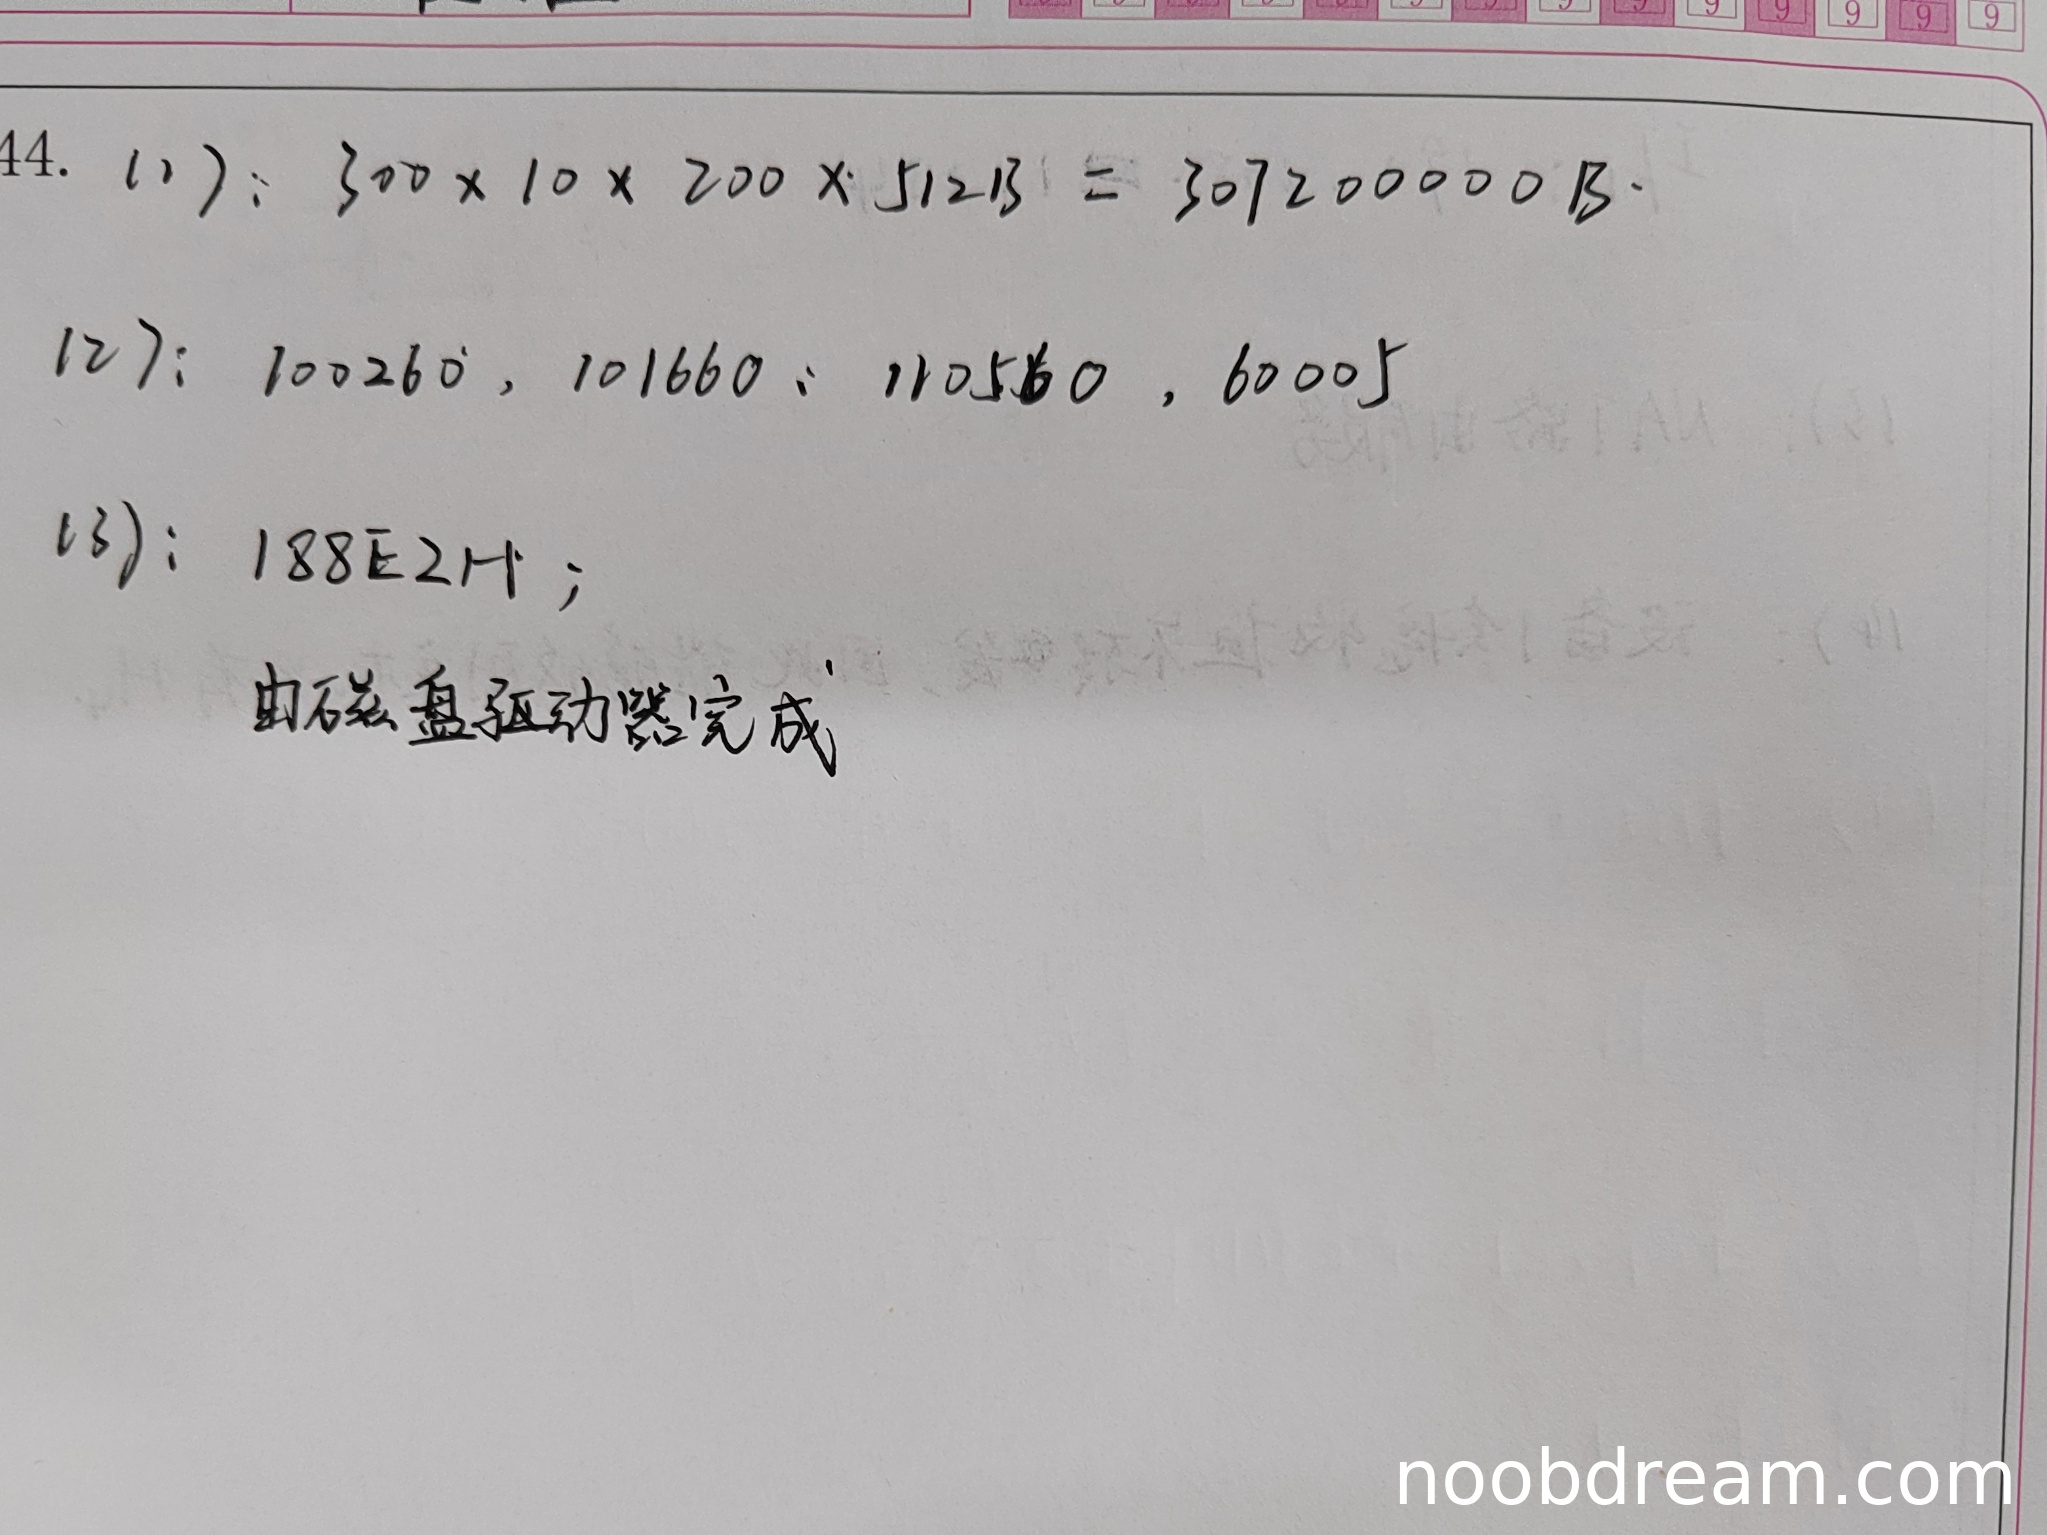 9 9 9 9 9 9 9
44. (1): 300 × 10 × 200 × 512B = 307200000B.
(2): 100260, 101660, 110560, 60005
(3): 188E2H;
由磁盘驱动器完成
noobdream.com